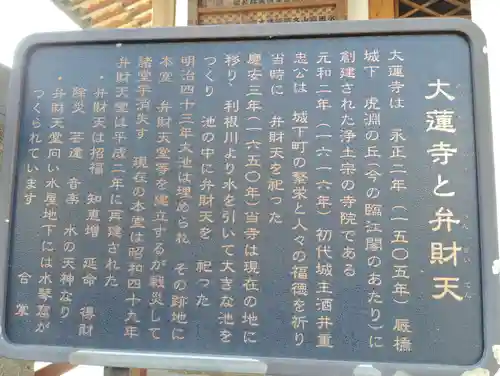 大蓮寺と弁財天
べんざいてん
大蓮寺は 永正二年(一五〇五年)厩橋
城下 虎淵の丘(今の臨江閣のあたり)に
創建された浄土宗の寺院である
元和二年(一六一六年)初代城主酒井重
忠公は 城下町の繁栄と人々の福徳を祈り
当時に 弁財天を祀った
慶安三年(一六五〇年)当寺は現在の地に
移り、利根川より水を引いて大きな池を
つくり 池の中に弁財天を 祀った
明治四十三年大池は埋められ その跡地に
本堂 弁財天堂等を建立するが戦災して
諸堂宇消失す 現在の本堂は昭和四十九年
弁財天堂は平成二年に再建された
・弁財天は招福 知恵増 延命 得財
除災 芸達 音楽 水の天神なり
・弁財天堂向い水屋地下には水琴窟が
つくられています
合掌